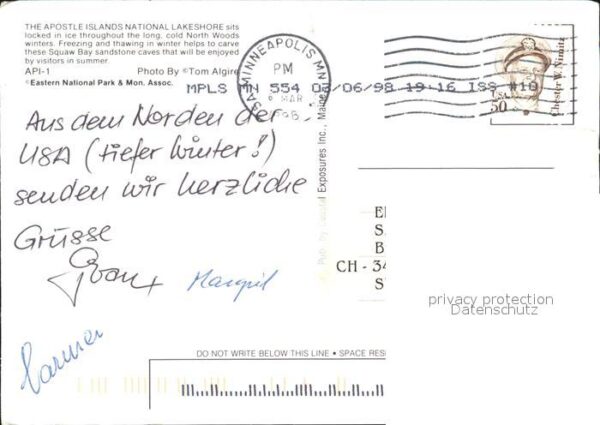 THE APOSTLE ISLANDS NATIONAL LAKESHORE sits
locked in ice throughout the long, cold North Woods
winters. Freezing and thawing in winter helps to carve
these Squaw Bay sandstone caves that will be enjoyed
by visitors in summer.
API-1 Photo By ©Tom Algire
©Eastern National Park & Mon. Assoc.
MINNEAPOLIS MN
PM
MAR
MPLS MN 554 03/06/98 19:16 ISS #10
USA
50
Chester W. Nimitz
Aus dem Norden der
USA (tiefer Winter!)
senden wir herzliche
Grüsse
CH - 34
privacy protection
Datenschutz
DO NOT WRITE BELOW THIS LINE • SPACE RES